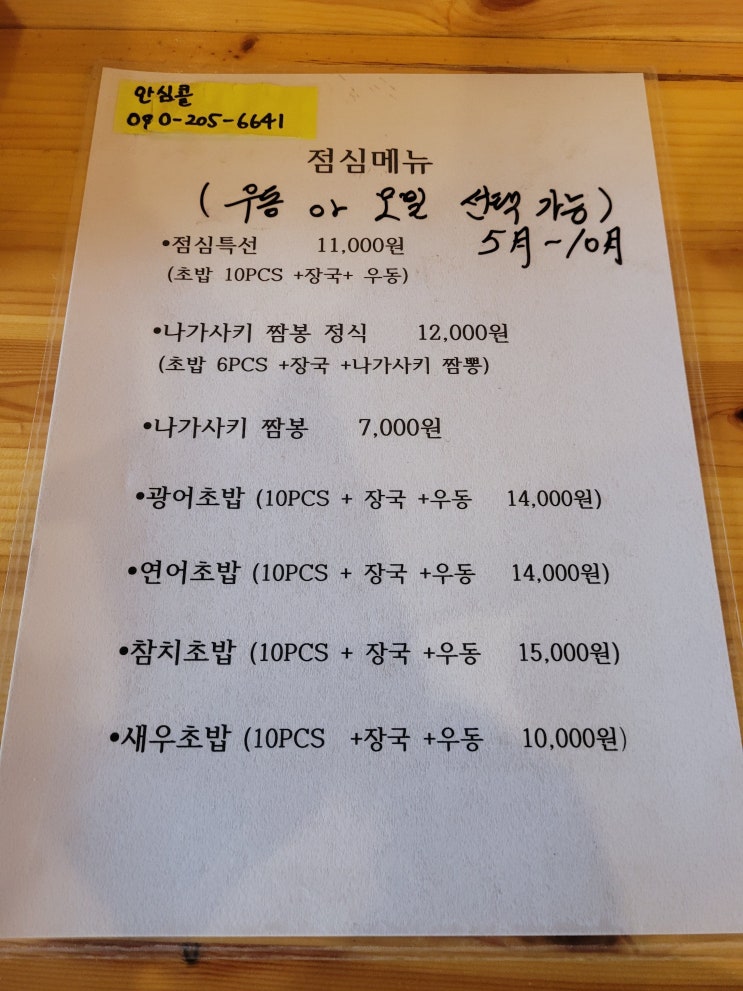 안심콜
090-205-6641
점심메뉴
(우동 or 모밀 선택 가능)
•점심특선 11,000원 5月~10月
(초밥 10PCS +장국+ 우동)
•나가사키 짬봉 정식 12,000원
(초밥 6PCS +장국 +나가사키 짬뽕)
•나가사키 짬봉 7,000원
•광어초밥 (10PCS + 장국 +우동 14,000원)
•연어초밥 (10PCS + 장국 +우동 14,000원)
•참치초밥 (10PCS + 장국 +우동 15,000원)
•새우초밥 (10PCS +장국 +우동 10,000원)